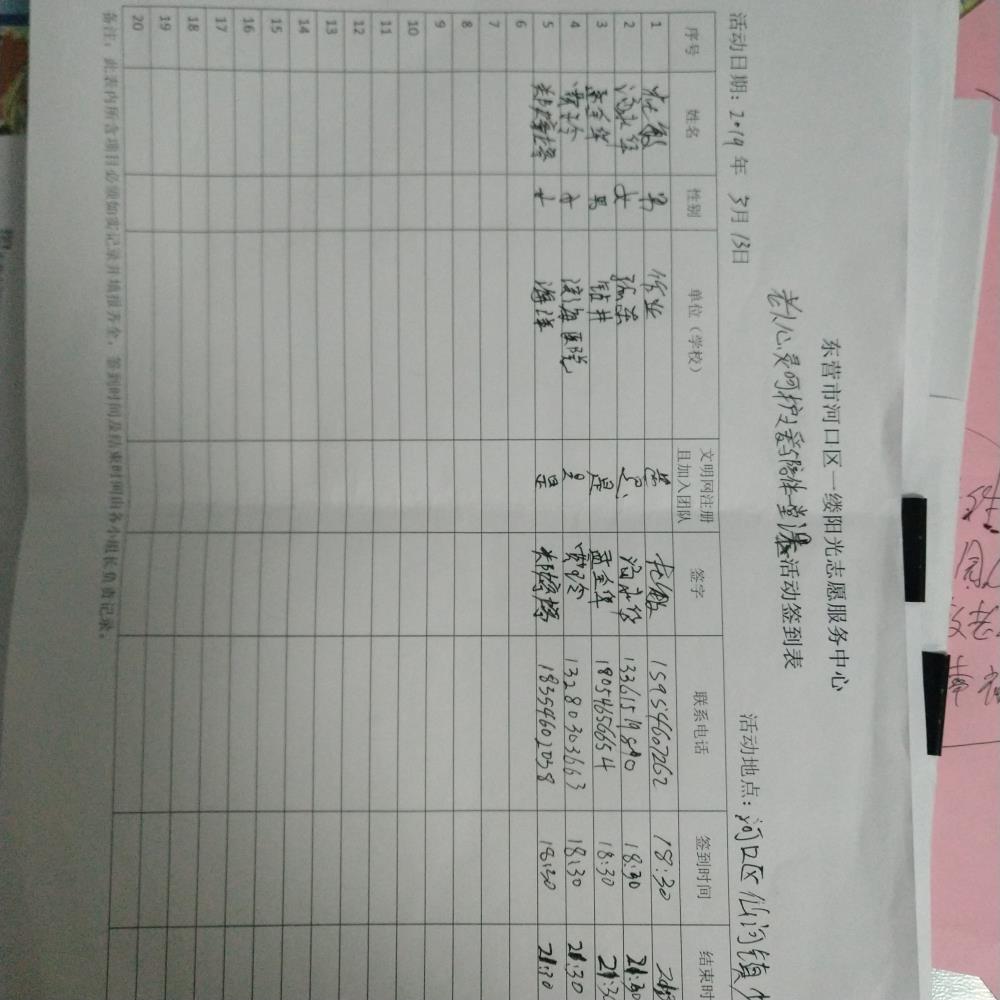 东营市河口区一缕阳光志愿服务中心
老人心灵呵护之爱陪伴堂课活动签到表
活动日期：2019年 3月13日 活动地点：河口区仙河镇
序号 姓名 性别 单位（学校） 文明网注册且加入团队 签字 联系电话 签到时间 结束时
1 男 作业 是 15954607262 18:30
2 女 孤岛 是 18:30 21:30
3 孟全华 男 钻井 是 孟全华 18054656654 18:30 21:30
4 黄玉玲 女 滨海医院 是 13280303663 18:30 21:30
5 女 海洋 是 18354602058 18:30 21:30
6
7
8
9
10
11
12
13
14
15
16
17
18
19
20
备注：此表内所含项目必须如实记录并填报齐全，签到时间及结束时间由各小组长负责记录。